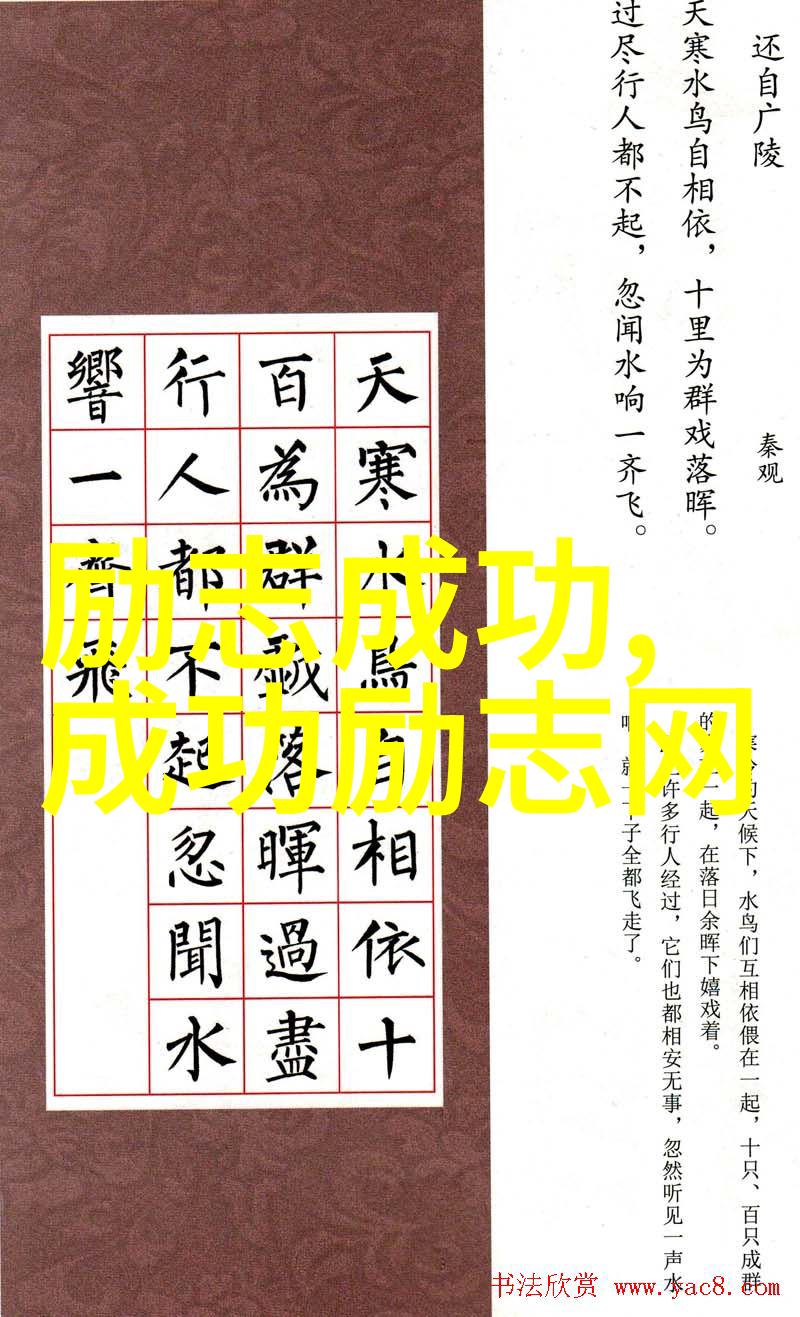 还自广陵
秦观
天寒水鸟自相依，十里为群戏落晖。
过尽行人都不起，忽闻水响一齐飞。
天候下，水鸟们互相依偎在一起，十只、百只成群
的一起，在落日余晖下嬉戏着。
许多行人经过，它们也都相安无事，忽然听见一声水
就一下子全都飞走了。
天寒水鳥自相依十
百為群戲落暉過盡
行人都不起忽聞水
響一齊飛
励志成功,
成功励志网
书法欣赏 www.yac8.com